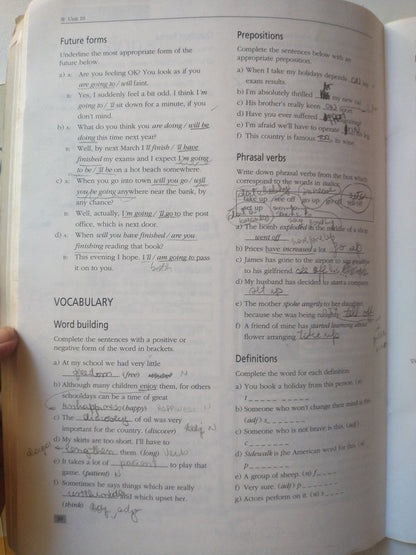 Unit 10
Future forms
Underline the most appropriate form of the
future below.
a) A: Are you feeling OK? You look as if you
are going to / will faint.
B: Yes, I suddenly feel a bit odd. I think I'm
going to / 'll sit down for a minute, if you
don't mind.
b) A: What do you think you are doing / will be
doing this time next year?
B: Well, by next March I'll finish / 'll have
finished my exams and I expect I'm going
to be / 'll be on a hot beach somewhere.
c) A: When you go into town will you go / will
you be going anywhere near the bank, by
any chance?
B: Well, actually, I'm going / 'll go to the post
office, which is next door.
d) A: When will you have finished / are you
finishing reading that book?
B: This evening I hope. I'll / am going to pass
it on to you. both
VOCABULARY
Word building
Complete the sentences with a positive or
negative form of the word in brackets.
a) At my school we had very little
freedom (free) N
b) Although many children enjoy them, for others
schooldays can be a time of great
unhappiness (happy) happiness N
c) The discovery of oil was very
important for the country. (discover)
d) My skirts are too short. I'll have to
lengthen them. (long) verb
e) It takes a lot of patient to play that
game. (patient) N
f) Sometimes he says things which are really
and which upset her.
(think) adj
Prepositions
Complete the sentences below with an
appropriate preposition.
a) When I take my holidays depends on my
exam results.
b) I'm absolutely thrilled my new car
c) His brother's really keen
d) Have you ever suffered
e) I'm afraid we'll have to operate
f) This country is famous to wine.
Phrasal verbs
Write down phrasal verbs from the box which
correspond to the words in italics.
take up see off go up go off
set up
a) The bomb exploded in the middle of a shop.
went off
b) Prices have increased a lot.
c) James has gone to the airport to say goodbye
to his girlfriend. see off
d) My husband has decided to start a company.
set up
e) The mother spoke angrily to her daughter
because she was being tell off
f) A friend of mine has started learning about
flower arranging. take up
Definitions
Complete the word for each definition.
a) You book a holiday from this person. (n)
t
b) Someone who won't change their mind is this.
(adj) s
c) Someone who is not brave is this. (adj)
c
d) Sidewalk is the American word for this. (n)
p
e) A group of sheep. (n) f
f) Very sure. (adj) p
g) Actors perform on it. (n) s